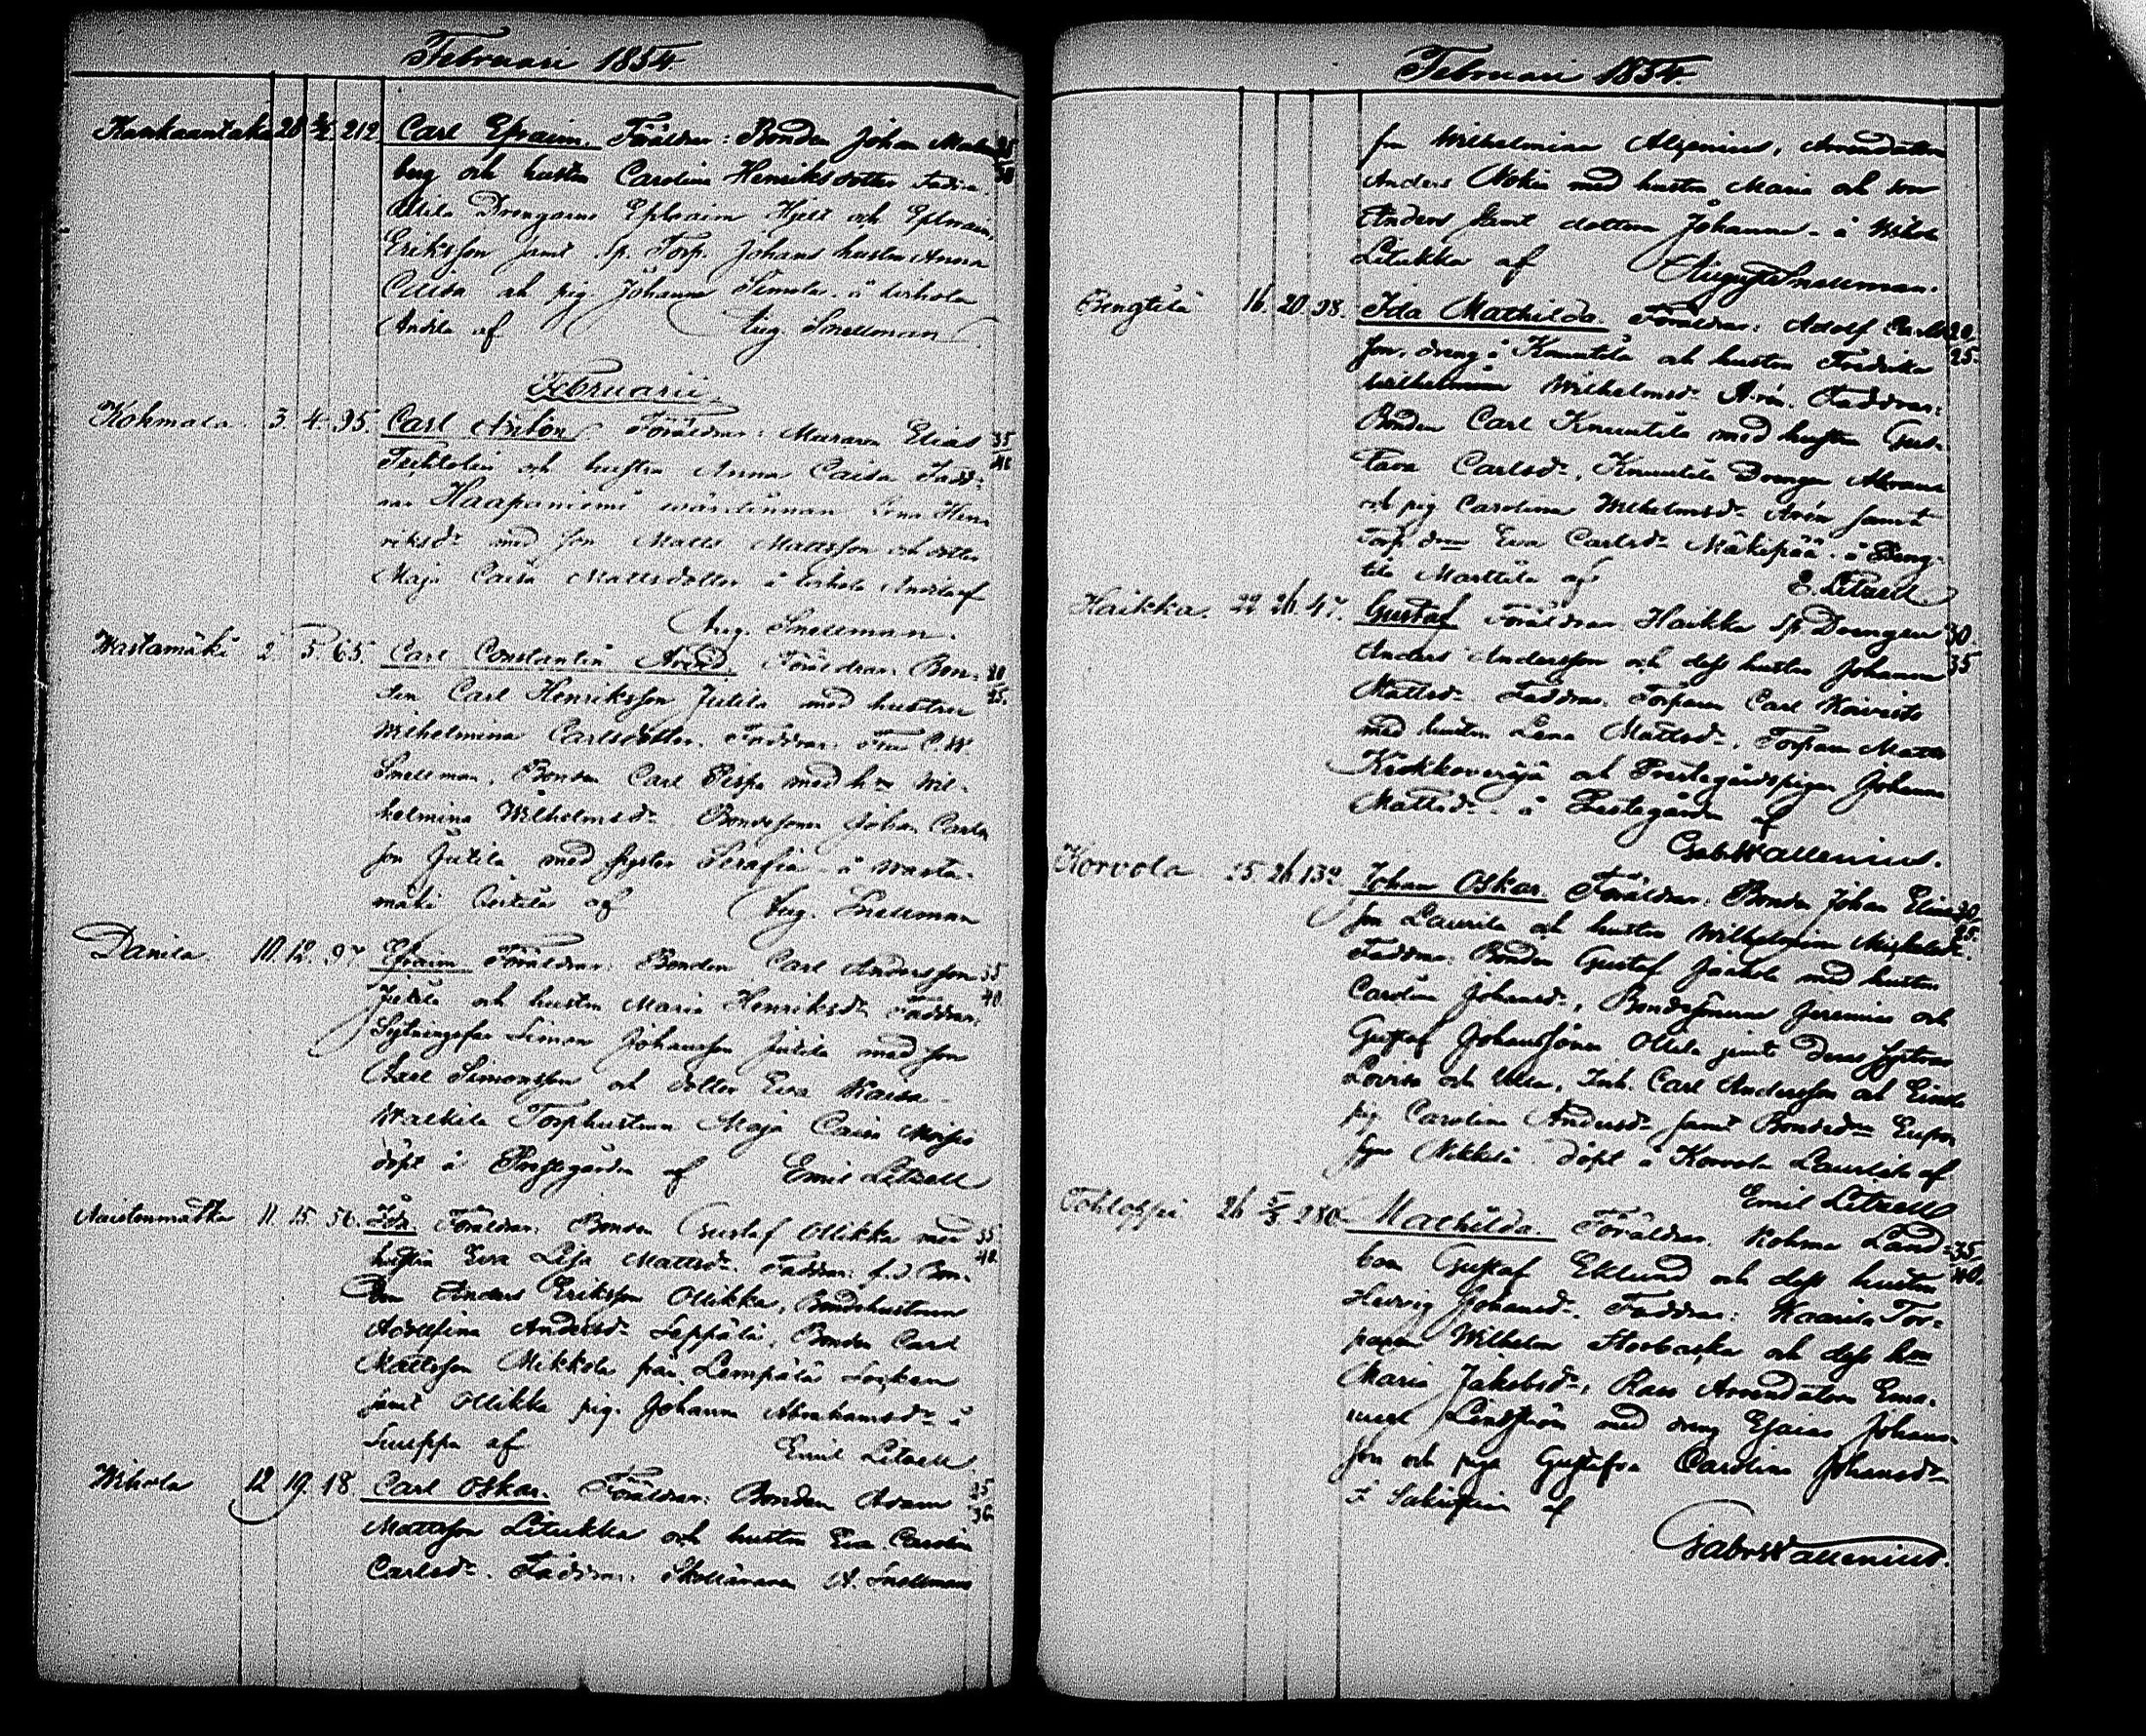 Februari 1854.
Kankaantaka 28 5/2 212. Carl Efraim. Föräldrar: Bonden Johan Malm 35
berg och hustru Carolina Henriksdotter Faddr. 40
Drengarne Ephraim Hjelt och Ephraim
Eriksson samt Sp. Torp. Johans hustru Anna
Caisa och pig. Johanna Simula. å Wihola
Anttila af Aug. Snellman
Februarii.
Kohmala. 3. 4. 95. Carl Anton. Föräldrar: Muraren Elias 35
och hustru Anna Caisa Fadd- 40
rar Haapaniemi wärdinnan Lena Hen
riksdr med son Matts Mattsson och dotter
Maja Caisa Mattsdotter å Wihola Anttila af
Aug. Snellman.
Wastamäki 2. 5. 65. Carl Constantin Arvid. Föräldrar. Bon- 20
den Carl Henriksson Jutila med hustru 25.
Wilhelmina Carlsdotter. Faddrar. Fru C.W.
Snellman, Bonden Carl Pispa med h:u Wil-
helmina Wilhelmsdr. Bondesonen Johan Carls
son Jutila med syster Serafia å Wasta-
mäki Jutila af Aug. Snellman
Danila 10. 12. 97 Efraim Föräldrar: Bonden Carl Andersson 35
Jutila och hustru Maria Henriksdr Faddrar: 40
Sytningsfar Simon Johansson Jutila med son
Axel Simonsson och dotter Eva Kaisa
Walkila Torphustrun Maja Caisa Moisio
döpt å Prestgården af Emil Litzell
Naistenmatka 11. 15. 56. Ida. Föräldrar. Bonden Gustaf Ollikka med 35
hustru Eva Lisa Mattsdr. Faddrar: f.d. Bon- 40
den Anders Eriksson Ollikka, Bondehustrun
Adolfina Andersdr Leppälä, Bonden Carl
Mattsson Mikkola från Lempälä Socken
samt Ollikka pig. Johanna Abrahamsdr å
Suuppa af Emil Litzell
Wihola 12 19. 18. Carl Oskar. Föräldrar: Bonden Adam 25
Mattsson Litukka och hustru Eva Carolin 30
Carlsdr. Faddrar: Skolläraren A. Snellmans
Februari 1854.
fru Wilhelmina Alzenius, Arrendatorn
Anders Nokia med hustru Maria och son
Anders samt dottern Johanna å Wihola
Litukka af August Snellman.
Pengtilä 16. 20. 98. Ida Mathilda. Föräldrar: Adolf 20
son, dreng i Knuutila och hustru Fredrika 25.
Wilhelmina Wilhelmsdr Arén. Faddrar:
Bonden Carl Knuutila med hustru Gus-
tava Carlsdr, Knuutila Drengen Abraham
och pig Carolina Wilhelmsdr Arén samt
Torp dr Eva Carlsdr Mäkipää å Peng-
tilä Marttila af E. Litzell
Haikka. 22 26 47. Gustaf Föräldrar Haikka Sp. Drengen 30.
Anders Andersson och dess hustru Johanna 35
Mattsd. Faddrar. Torparen Carl Koivisto
med hustru Lena Mattsdr, Torparen Matts
Krokkoveräjä och Prestegårdspigan Johanna
Mattsdr å Prestegården af
Gab. Wallenius.
Korvola 25. 26. 132. Johan Oskar. Föräldrar. Bonden Johan Elias 20
son Laurila och hustru Wilhelmina Michelsdr. 25.
Faddrar: Bonden Gustaf Jaakola med hustru
Carolina Johansdr, Bondesönerne Jeremias och
Gustaf Johanssöner Ollila jemte deras systrar
Lovisa och Ulla, Inh. Carl Andersson och
pig Carolina Andersdr samt Bondedr Eufro
syne Nikkilä. döpt å Korvola Laurila af
Emil Litzell
Tohloppi 26 5/3 280. Mathilda. Föräldrar. Kohma Land- 35
bon Gustaf Eklund och dess hustru 40.
Hedvig Johansdr. Faddrar: Kaarila Tor-
paren Wilhelm Storbacka och dess h:u
Maria Jakobsdr, Rass Arrendatorn Ema-
nuel Lindström med dreng Esaias Johans-
son och piga Gustafva Carolina Johansdr
I af
Gabr Wallenius.